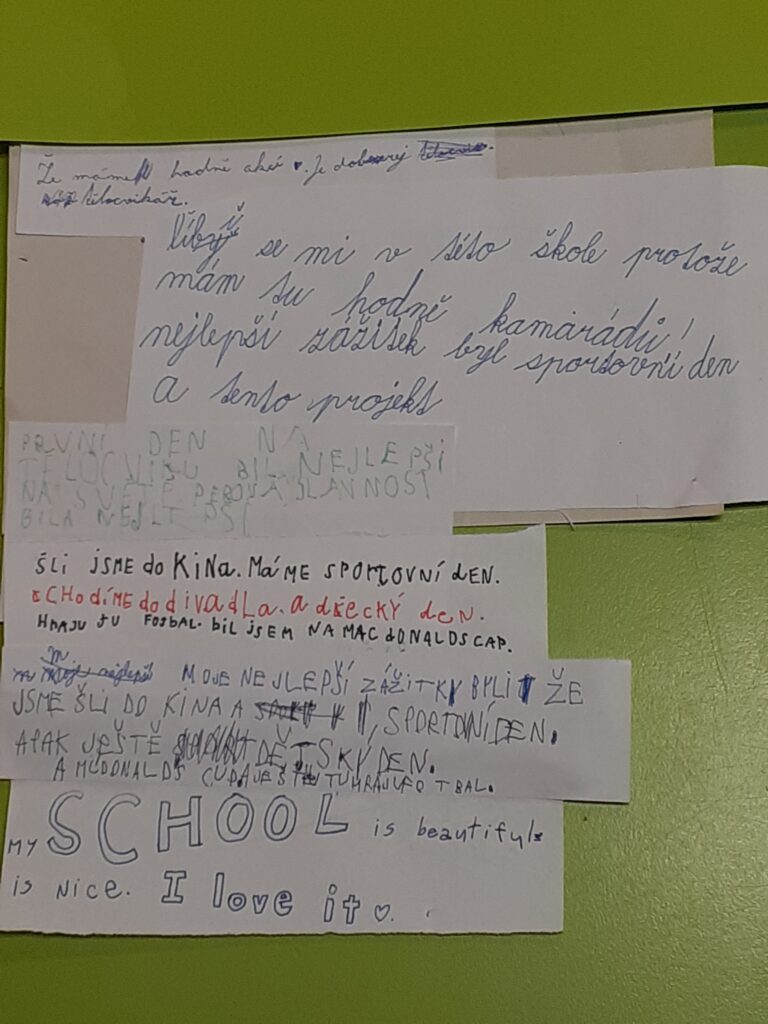 Že máme hodně akcí ♥. Je dobrej
tělocvikář.
líbý se mi v této škole protože
mám tu hodně kamarádů!
nejlepší zážitek byl sportovní den
a tento projekt
PRVNÍ DEN NA
TĚLOCVIKU BIL NEJLEPŠÍ
NA SVĚTĚ PEROVÁ SLAVNOST
BILA NEJLEPŠÍ
ŠLI JSME do KiNa. MáME SPORTOVNÍ dEN.
CHOdíME do divadLa. a děcKÝ dEN.
HRAJU TU FOTBAL. BIL JSEM NA MAC dONALDS CAP.
MOJE NEJLEPŠÍ ZÁŽITKY BYLI ŽE
JSME ŠLI DO KINA A, SPORTOVNÍ DEN.
APAK JEŠTĚ DĚTSKÝ DEN.
A MCDONALDS CUP. A JEŠTĚ TU HRAJU FOTBAL.
MY SCHOOL is beautiful
is Nice. I love it ♡.